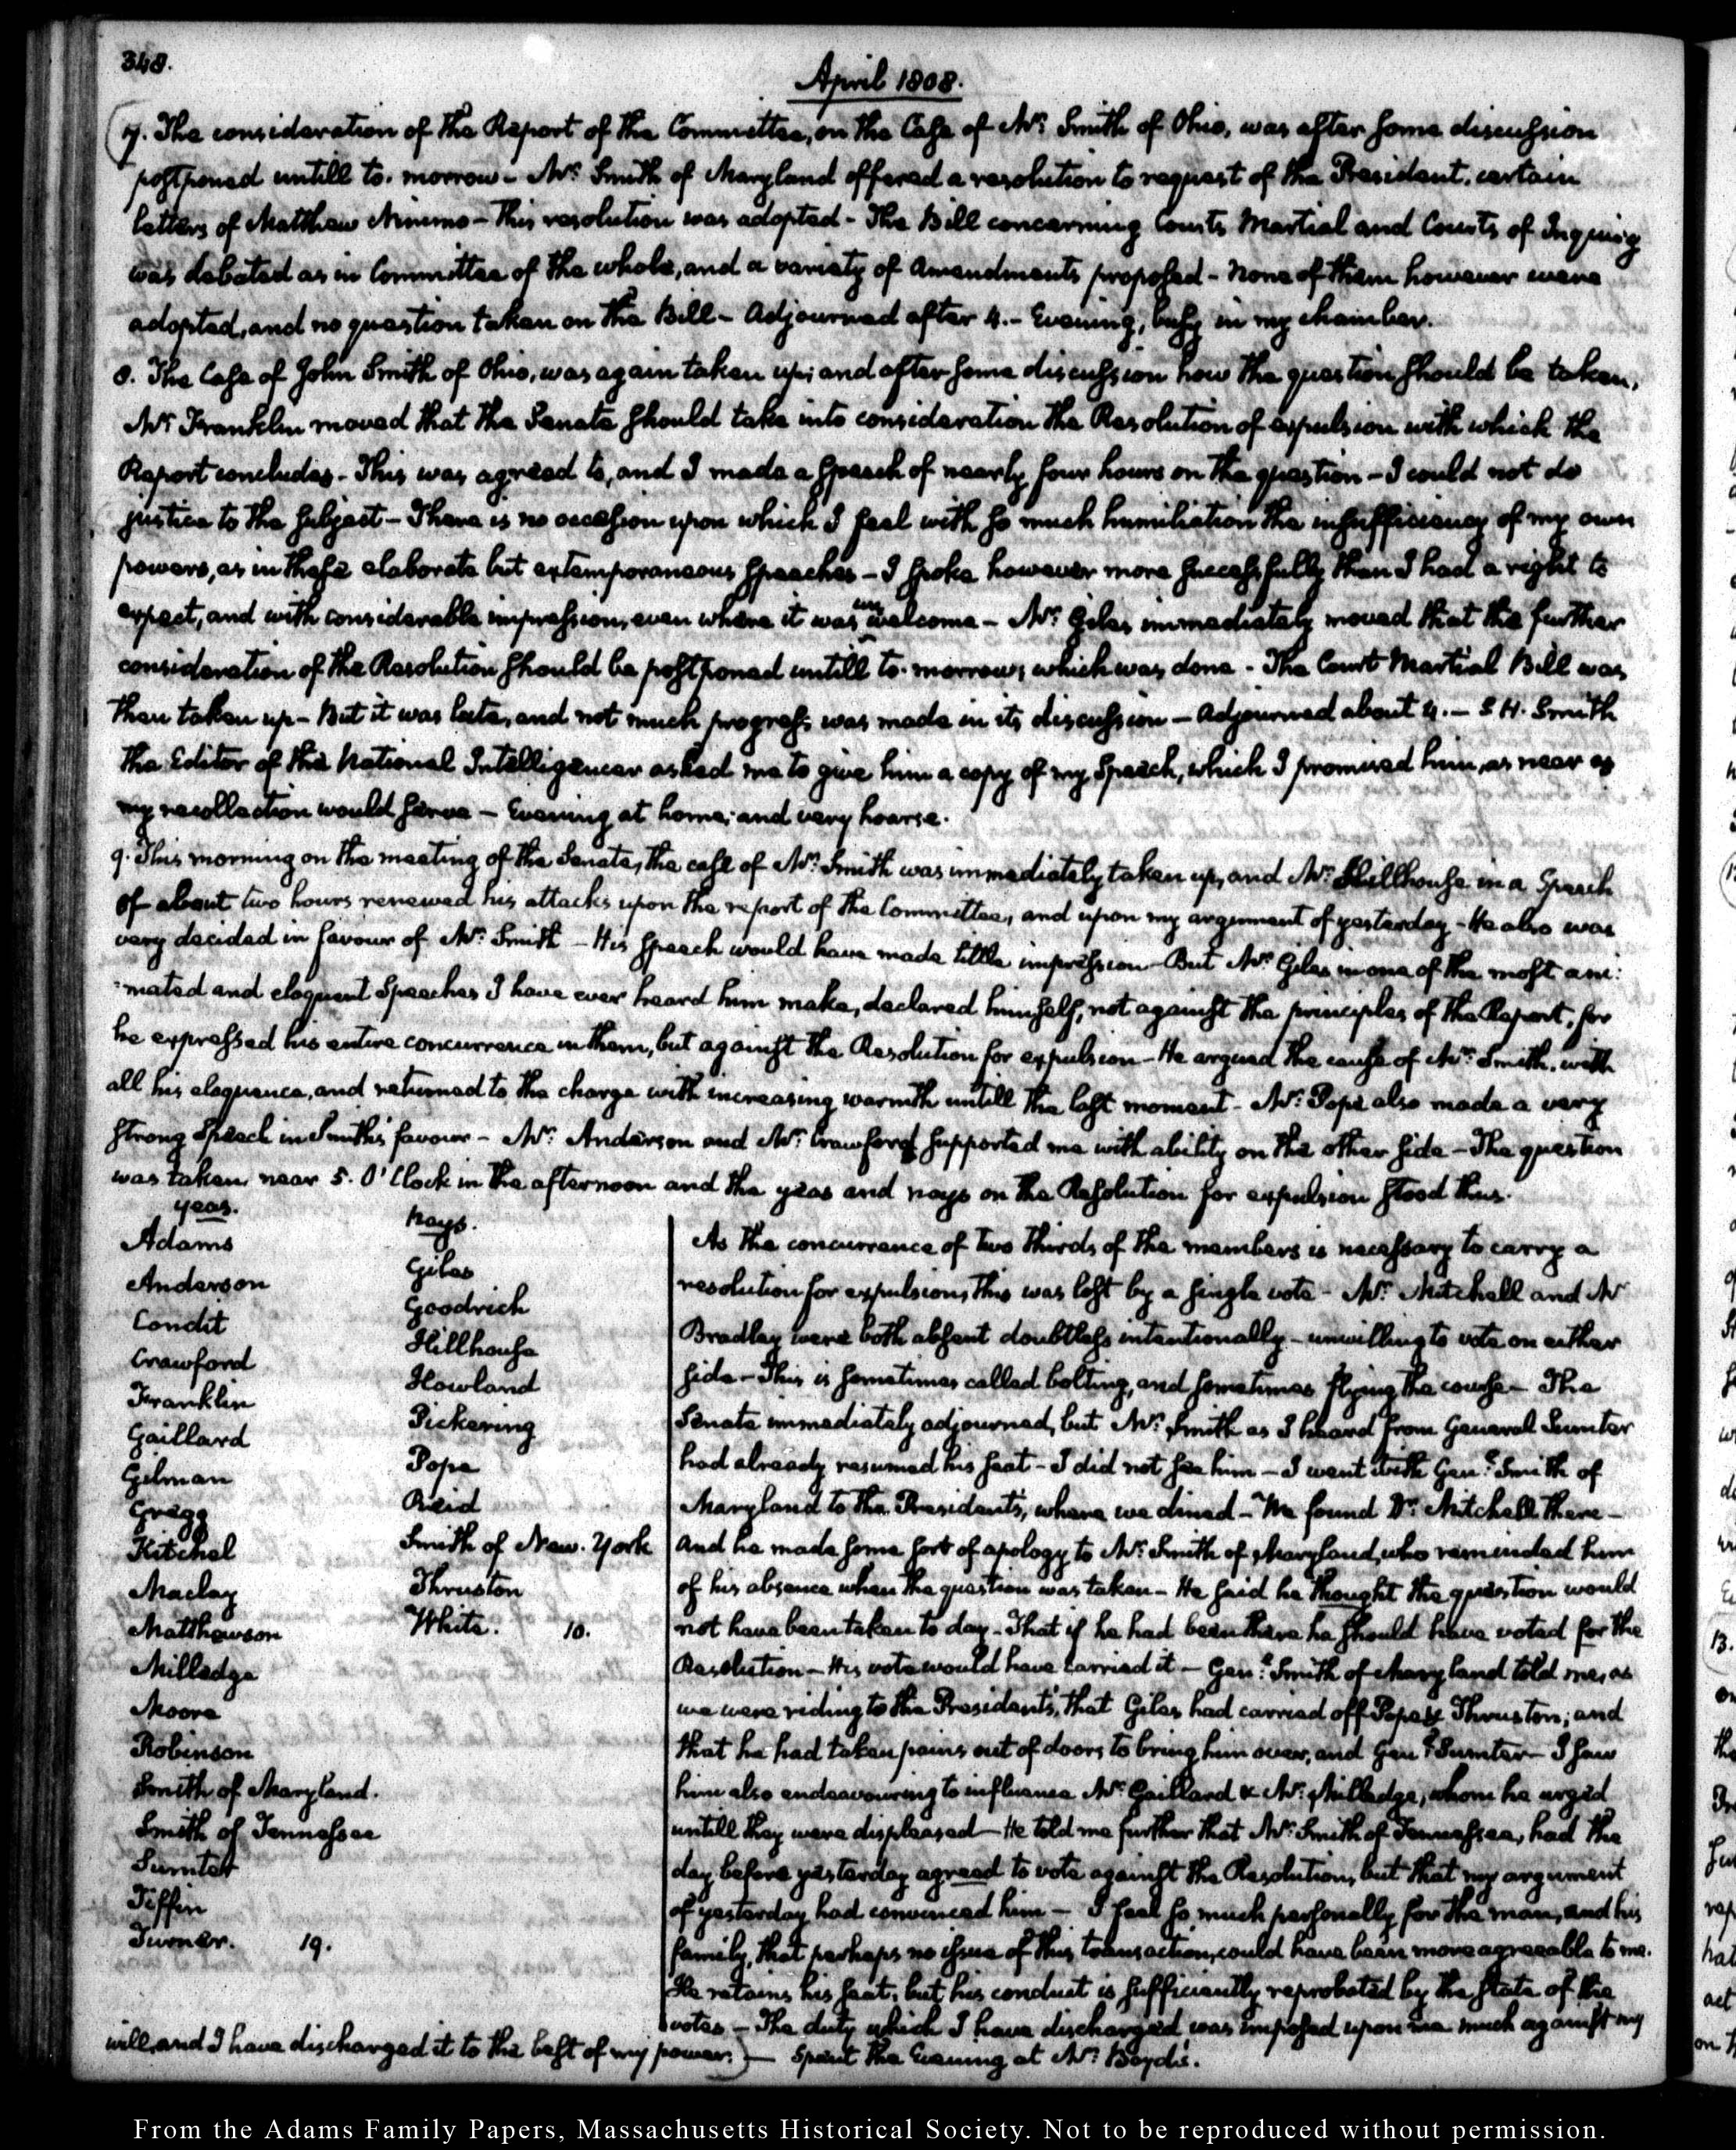 348.
April 1808.
7. The consideration of the Report of the Committee, on the Case of Mr: Smith of Ohio, was after some discussion
postponed untill to-morrow - Mr: Smith of Maryland offered a resolution to request of the President, certain
letters of Matthew Nimmo - This resolution was adopted - The Bill concerning Courts Martial and Courts of Inquiry
was debated as in Committee of the whole, and a variety of Amendments proposed - None of them however were
adopted, and no question taken on the Bill - Adjourned after 4. - Evening, busy in my chamber.
8. The Case of John Smith of Ohio, was again taken up; and after some discussion how the question should be taken,
Mr: Franklin moved that the Senate should take into consideration the Resolution of expulsion with which the
Report concludes - This was agreed to, and I made a Speech of nearly four hours on the question - I could not do
justice to the subject - There is no occasion upon which I feel with so much humiliation the insufficiency of my own
powers, as in these elaborate but extemporaneous speeches - I spoke however more successfully than I had a right to
expect, and with considerable impression, even where it was unwelcome - Mr: Giles immediately moved that the further
consideration of the Resolution should be postponed untill to-morrow; which was done - The Court Martial Bill was
then taken up - But it was late, and not much progress was made in its discussion - Adjourned about 4. - S. H. Smith
the Editor of the National Intelligencer asked me to give him a copy of my Speech, which I promised him, as near as
my recollection would serve - Evening at home; and very hoarse.
9. This morning on the meeting of the Senate, the case of Mr: Smith was immediately taken up, and Mr: Hillhouse in a Speech
of about two hours renewed his attacks upon the report of the Committee, and upon my argument of yesterday - He also was
very decided in favour of Mr: Smith - His speech would have made little impression - But Mr: Giles in one of the most ani:
:mated and eloquent Speeches I have ever heard him make, declared himself, not against the principles of the Report, for
he expressed his entire concurrence in them, but against the Resolution for expulsion - He argued the cause of Mr: Smith, with
all his eloquence, and returned to the charge with increasing warmth untill the last moment - Mr: Pope also made a very
strong Speech in Smith's favour - Mr: Anderson and Mr: Crawford supported me with ability on the other side - The question
was taken, near 5. O'Clock in the afternoon and the yeas and nays on the Resolution for expulsion stood thus.
yeas.
Adams
Anderson
Condit
Crawford
Franklin
Gaillard
Gilman
Gregg
Kitchel
Maclay
Matthewson
Milledge
Moore
Robinson
Smith of Maryland.
Smith of Tennessee
Sumter
Tiffin
Turner. 19.
Nays.
Giles
Goodrich
Hillhouse
Howland
Pickering
Pope
Reid
Smith of New-York
Thruston
White. 10.
As the concurrence of two thirds of the members is necessary to carry a
resolution for expulsion, this was lost by a single vote - Mr: Mitchell and Mr
Bradley were both absent doubtless intentionally - unwilling to vote on either
side - This is sometimes called bolting, and sometimes flying the course - The
Senate immediately adjourned, but Mr: Smith as I heard from General Sumter
had already resumed his seat - I did not see him - I went with Genl: Smith of
Maryland to the Presidents, where we dined - We found Dr: Mitchell there -
And he made some sort of apology to Mr: Smith of Maryland, who reminded him
of his absence when the question was taken - He said he thought the question would
not have been taken to day - That if he had been there he should have voted for the
Resolution - His vote would have carried it - Genl: Smith of Maryland told me, as
we were riding to the Presidents', that Giles had carried off Pope & Thruston; and
that he had taken pains out of doors to bring him over, and Genl: Sumter - I saw
him also endeavouring to influence Mr: Gaillard & Mr: Milledge, whom he urged
untill they were displeased - He told me further that Mr: Smith of Tennessee, had the
day before yesterday agreed to vote against the Resolution, but that my argument
of yesterday had convinced him - I feel so much personally for the man, and his
family, that perhaps no issue of this transaction, could have been more agreeable to me.
He retains his seat; but his conduct is sufficiently reprobated by the state of the
votes - The duty which I have discharged was imposed upon me much against my
will, and I have discharged it to the best of my power.) - Spent the Evening at Mr: Boyd's.
From the Adams Family Papers, Massachusetts Historical Society. Not to be reproduced without permission.